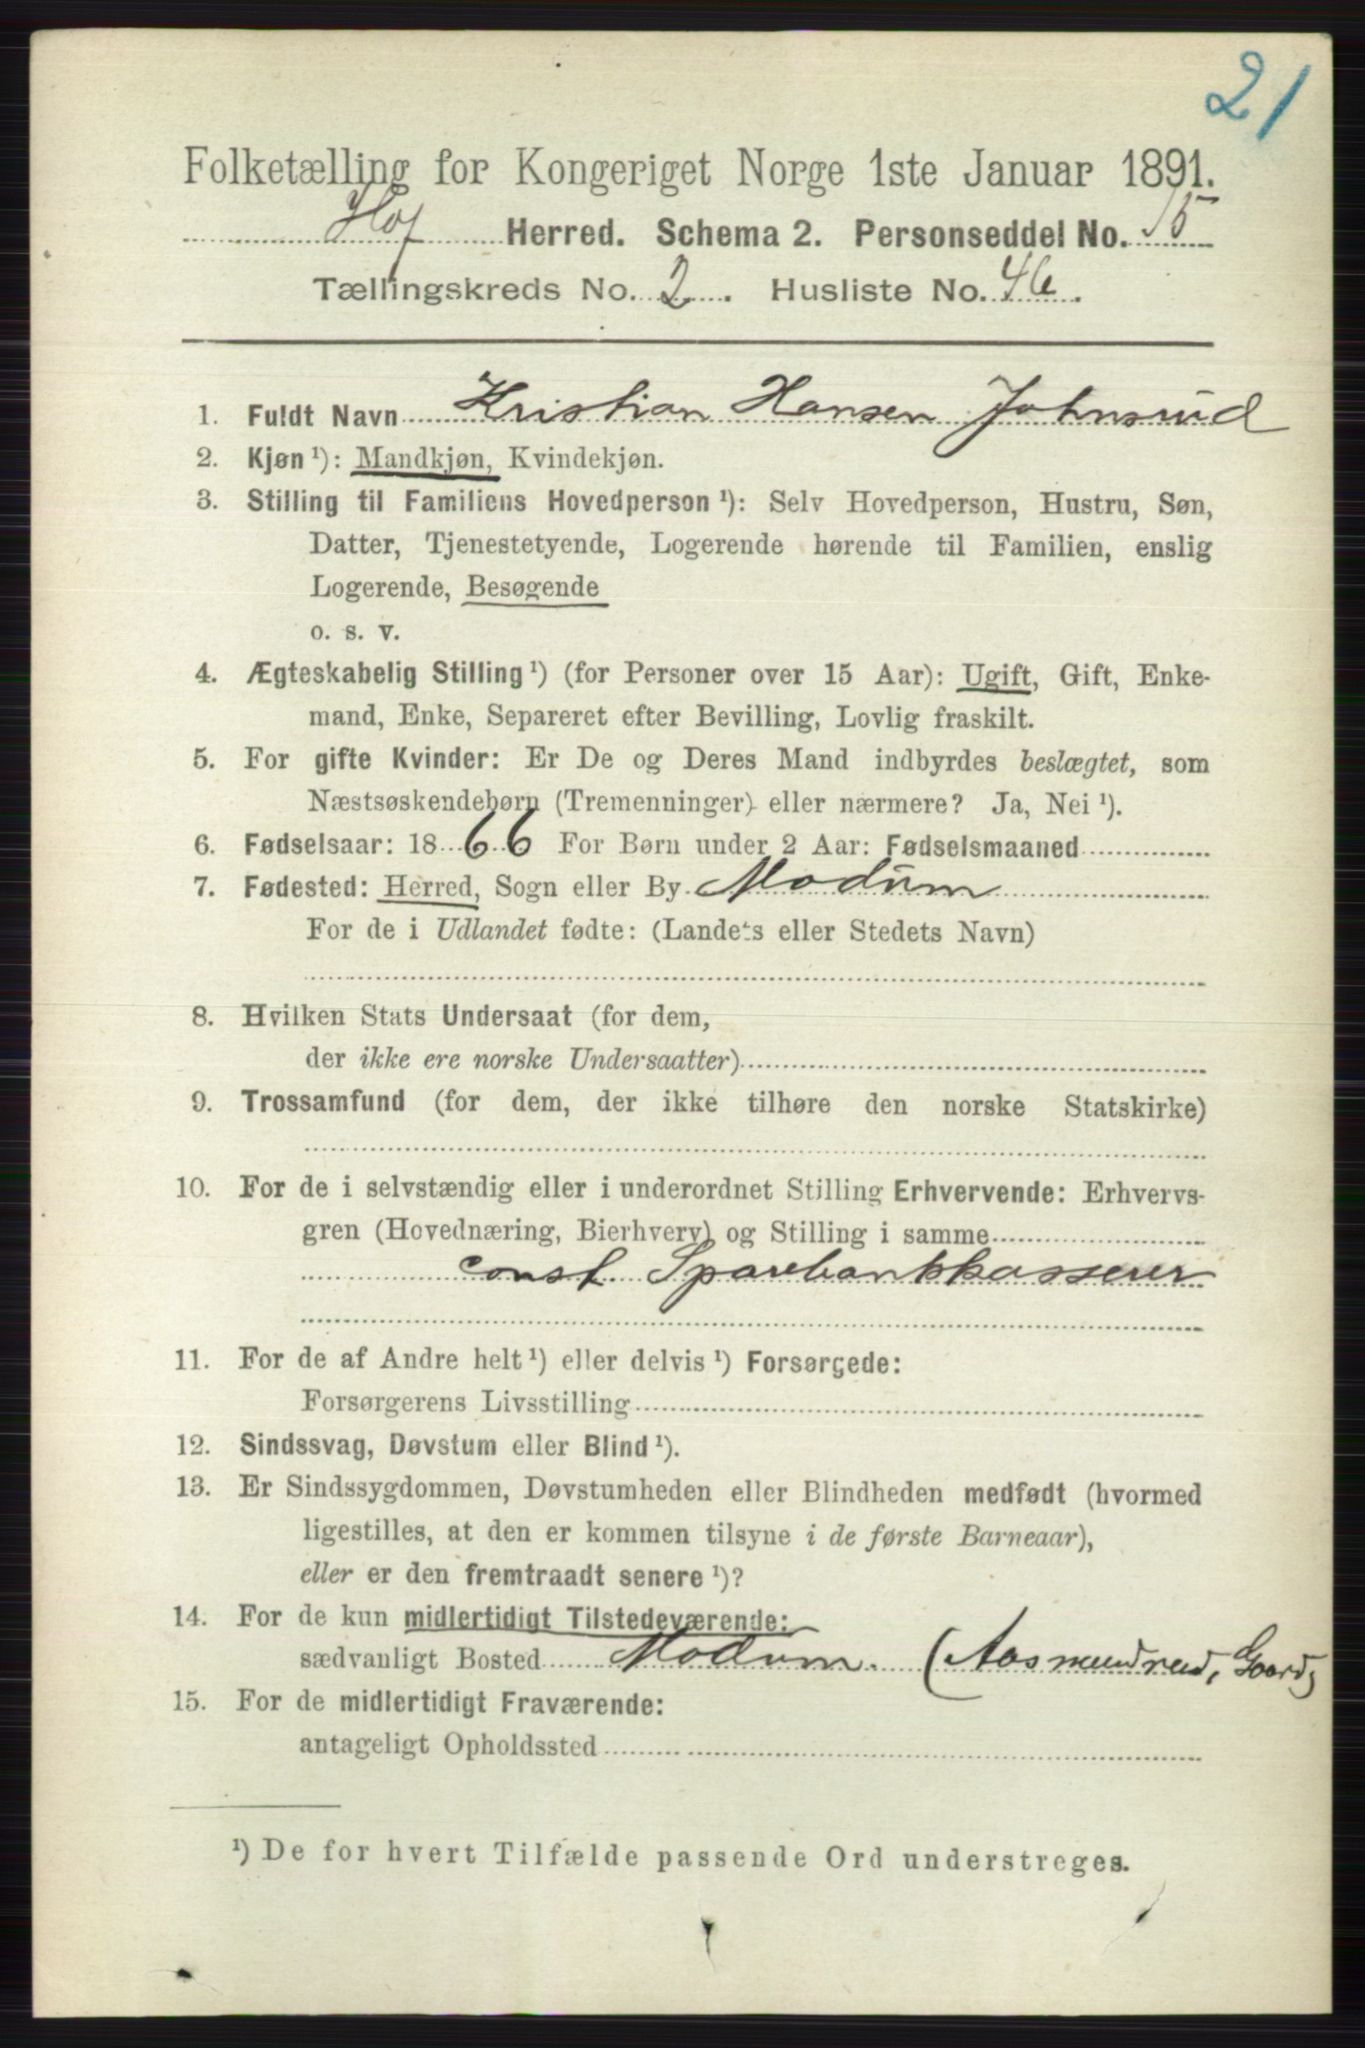 21
Folketælling for Kongeriget Norge 1ste Januar 1891.
Hof Herred. Schema 2. Personseddel No. 15
Tællingskreds No. 2. Husliste No. 46.
1. Fuldt Navn Kristian Hansen Johnsrud
2. Kjøn ¹): Mandkjøn, Kvindekjøn.
3. Stilling til Familiens Hovedperson ¹): Selv Hovedperson, Hustru, Søn,
Datter, Tjenestetyende, Logerende hørende til Familien, enslig
Logerende, Besøgende
o. s. v.
4. Ægteskabelig Stilling ¹) (for Personer over 15 Aar): Ugift, Gift, Enke-
mand, Enke, Separeret efter Bevilling, Lovlig fraskilt.
5. For gifte Kvinder: Er De og Deres Mand indbyrdes beslægtet, som
Næstsøskendebørn (Tremenninger) eller nærmere? Ja, Nei ¹).
6. Fødselsaar: 1866 For Børn under 2 Aar: Fødselsmaaned
7. Fødested: Herred, Sogn eller By Modum
For de i Udlandet fødte: (Landets eller Stedets Navn)
8. Hvilken Stats Undersaat (for dem,
der ikke ere norske Undersaatter)
9. Trossamfund (for dem, der ikke tilhøre den norske Statskirke)
10. For de i selvstændig eller i underordnet Stilling Erhvervende: Erhvervs-
gren (Hovednæring, Bierhverv) og Stilling i samme
const. Sparebankkasserer
11. For de af Andre helt ¹) eller delvis ¹) Forsørgede:
Forsørgerens Livsstilling
12. Sindssvag, Døvstum eller Blind ¹).
13. Er Sindssygdommen, Døvstumheden eller Blindheden medfødt (hvormed
ligestilles, at den er kommen tilsyne i de første Barneaar),
eller er den fremtraadt senere ¹)?
14. For de kun midlertidigt Tilstedeværende:
sædvanligt Bosted Modum. (Aasmundrud, Gaard)
15. For de midlertidigt Fraværende:
antageligt Opholdssted
¹) De for hvert Tilfælde passende Ord understreges.